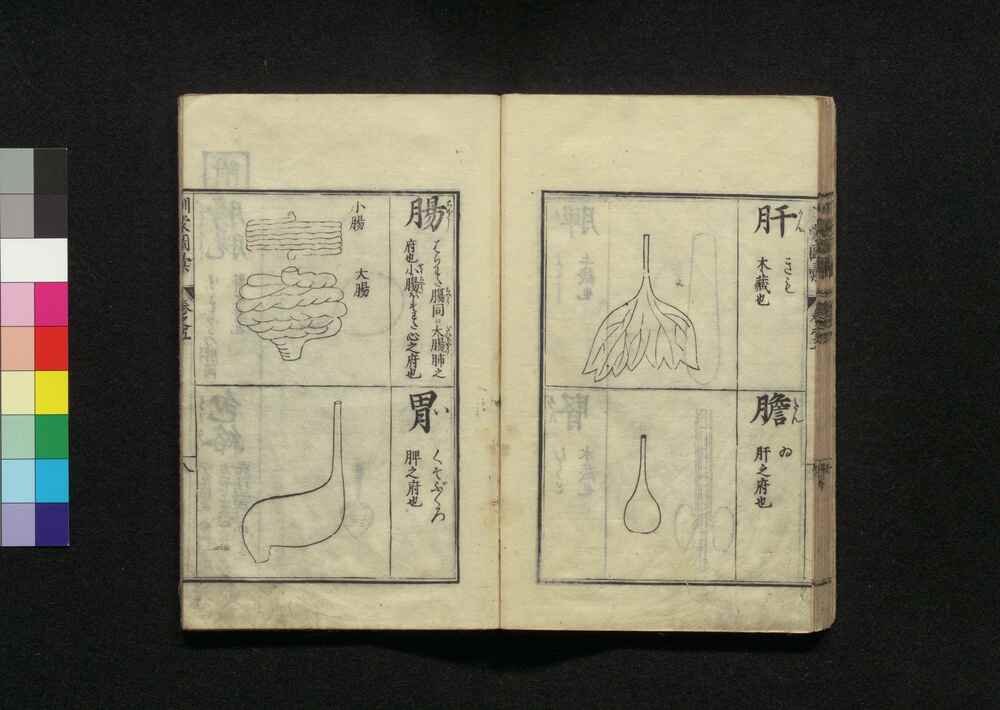 肝
かん
きも
木藏也
膽
たん
ゐ
肝之府也
腸
ちやう
はらわた 腸同 大腸肺之
府也 小腸 心之府也
小腸
大腸
胃
い
くそぶくろ
脾之府也